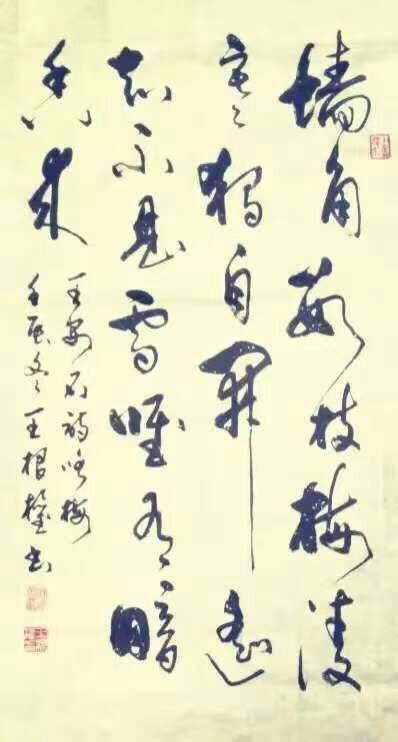 墙角数枝梅凌
寒独自開遥
知不是雪唯有暗
香来
王安石诗咏梅
壬辰冬王根书